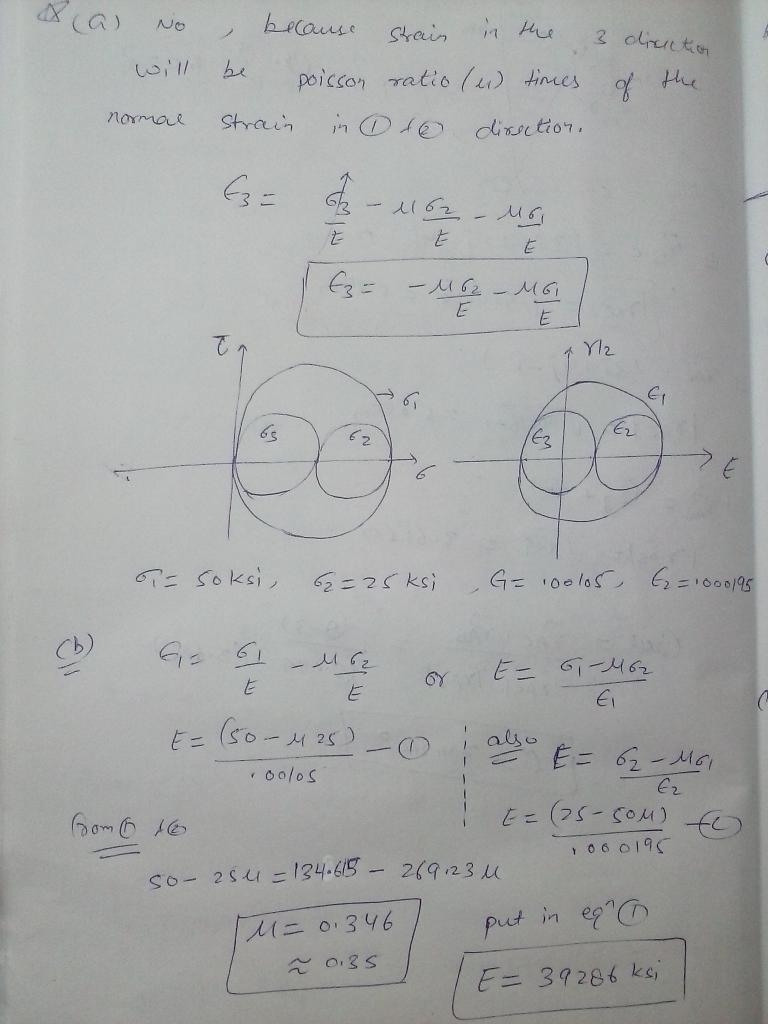 (a) No, because strain in the 3 direction
will be poisson ratio (μ) times of the
normal strain in ① & ② direction.
ϵ3 = σ3/E - μσ2/E - μσ1/E
ϵ3 = -μσ2/E - μσ1/E
τ
γ/2
σ1
σ3
σ2
σ
ϵ1
ϵ3
ϵ2
ϵ
σ1 = 50 ksi, σ2 = 25 ksi, ϵ1 = .00105, ϵ2 = .000195
(b) ϵ1 = σ1/E - μσ2/E or E = (σ1-μσ2)/ϵ1
E = (50-μ25)/.00105 - ①
also E = (σ2-μσ1)/ϵ2
E = (25-50μ)/.000195 - ②
from ① & ②
50-25μ = 134.615 - 269.23μ
μ = 0.346
≈ 0.35
put in eqn ①
E = 39286 ksi